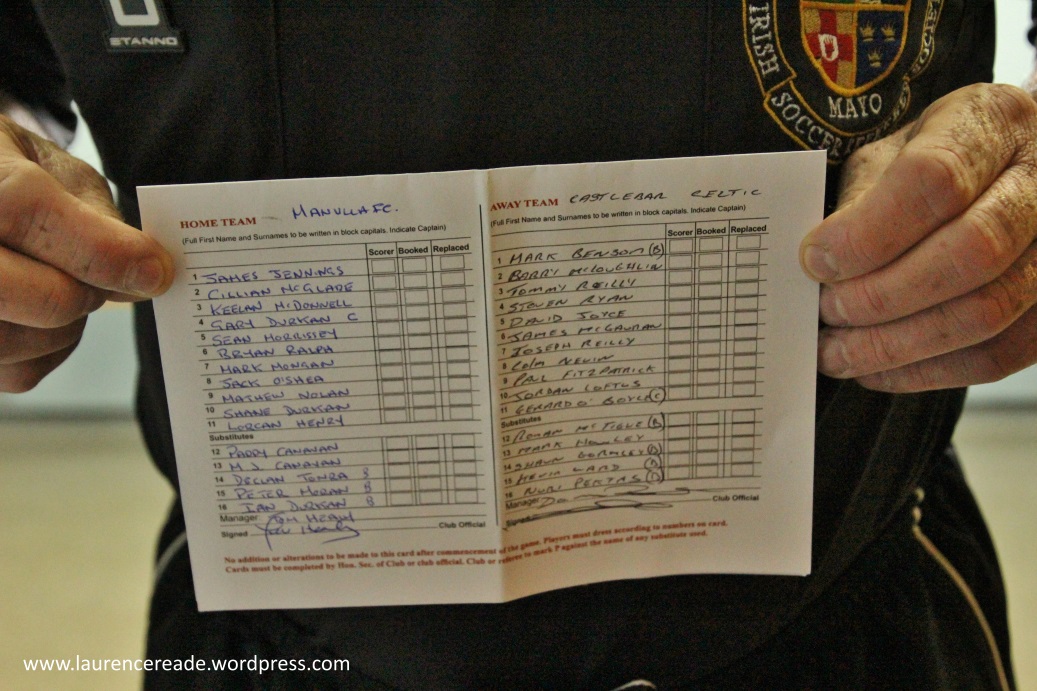 STANNO
IRISH SOCCER SOCIETY
MAYO
HOME TEAM MANULLA FC.
(Full First Name and Surnames to be written in block capitals. Indicate Captain)
Scorer Booked Replaced
1 JAMES JENNINGS
2 CILLIAN McGLADE
3 KEELAN McDONNELL
4 GARY DURKAN C
5 SEAN MORRISSEY
6 BRYAN RALPH
7 MARK MONGAN
8 JACK O'SHEA
9 MATHEW NOLAN
10 SHANE DURKAN
11 LORCAN HENRY
Substitutes
12 PADDY CANAVAN
13 M.J. CANAVAN
14 DECLAN TONRA B
15 PETER MORAN B
16 IAN DURKAN B
Manager: TOM HEALY
Signed Club Official
AWAY TEAM CASTLEBAR CELTIC
(Full First Name and Surnames to be written in block capitals. Indicate Captain)
Scorer Booked Replaced
1 MARK BENSON (B)
2 BARRY McLOUGHLIN
3 TOMMY REILLY
4 STEVEN RYAN
5 DAVID JOYCE
6 JAMES McGAURAN
7 JOSEPH REILLY
8 COLM NEVIN
9 PAUL FITZPATRICK
10 JORDAN LOFTUS
11 GERARD O'BOYLE (C)
Substitutes
12 RONAN McTIGUE (B)
13 MARK HOWLEY
14 SHAUN GORMLEY (B)
15 KEVIN LARD (B)
16 NURI PEKTAS (B)
Manager
Signed Club Official
No addition or alterations to be made to this card after commencement of the game. Players must dress according to numbers on card.
Cards must be completed by Hon. Sec. of Club or club official. Club or referee to mark P against the name of any substitute used.
www.laurencereade.wordpress.com